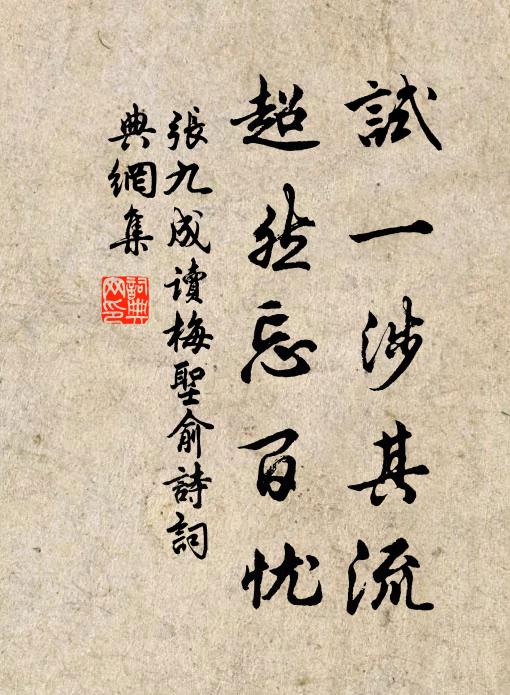 試一涉其流
超然忘百忧
張九成读梅聖俞詩詞
典網集
詞典
网印